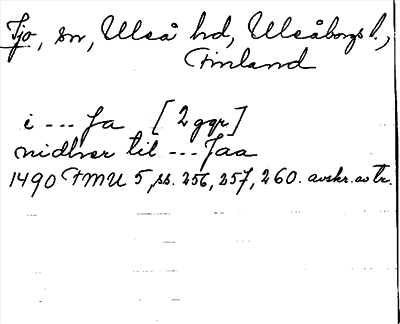 Ijo, sn, Uleå hd, Uleåborgs l.,
Finland
i --- Ja [2 ggr]
nidhrer til --- Jaa
1490 FMU 5, ss. 256, 257, 260. avskr. av tr.